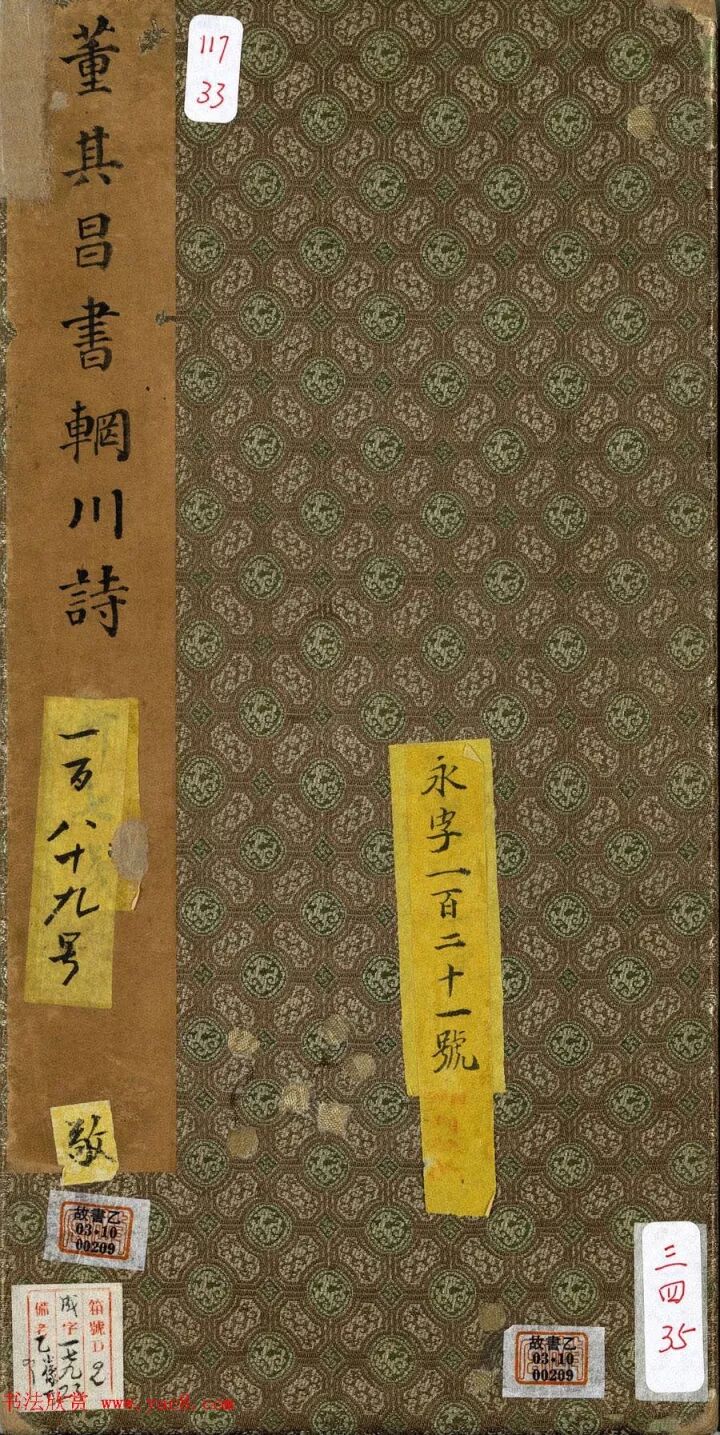 董其昌書輞川詩
一百八十九号
敬
117
33
永字一百二十一號
故書乙
03·10
00209
箱號D
2
成字
備考
故書乙
03·10
00209
三
四
35
书法欣赏 www.yac8.com